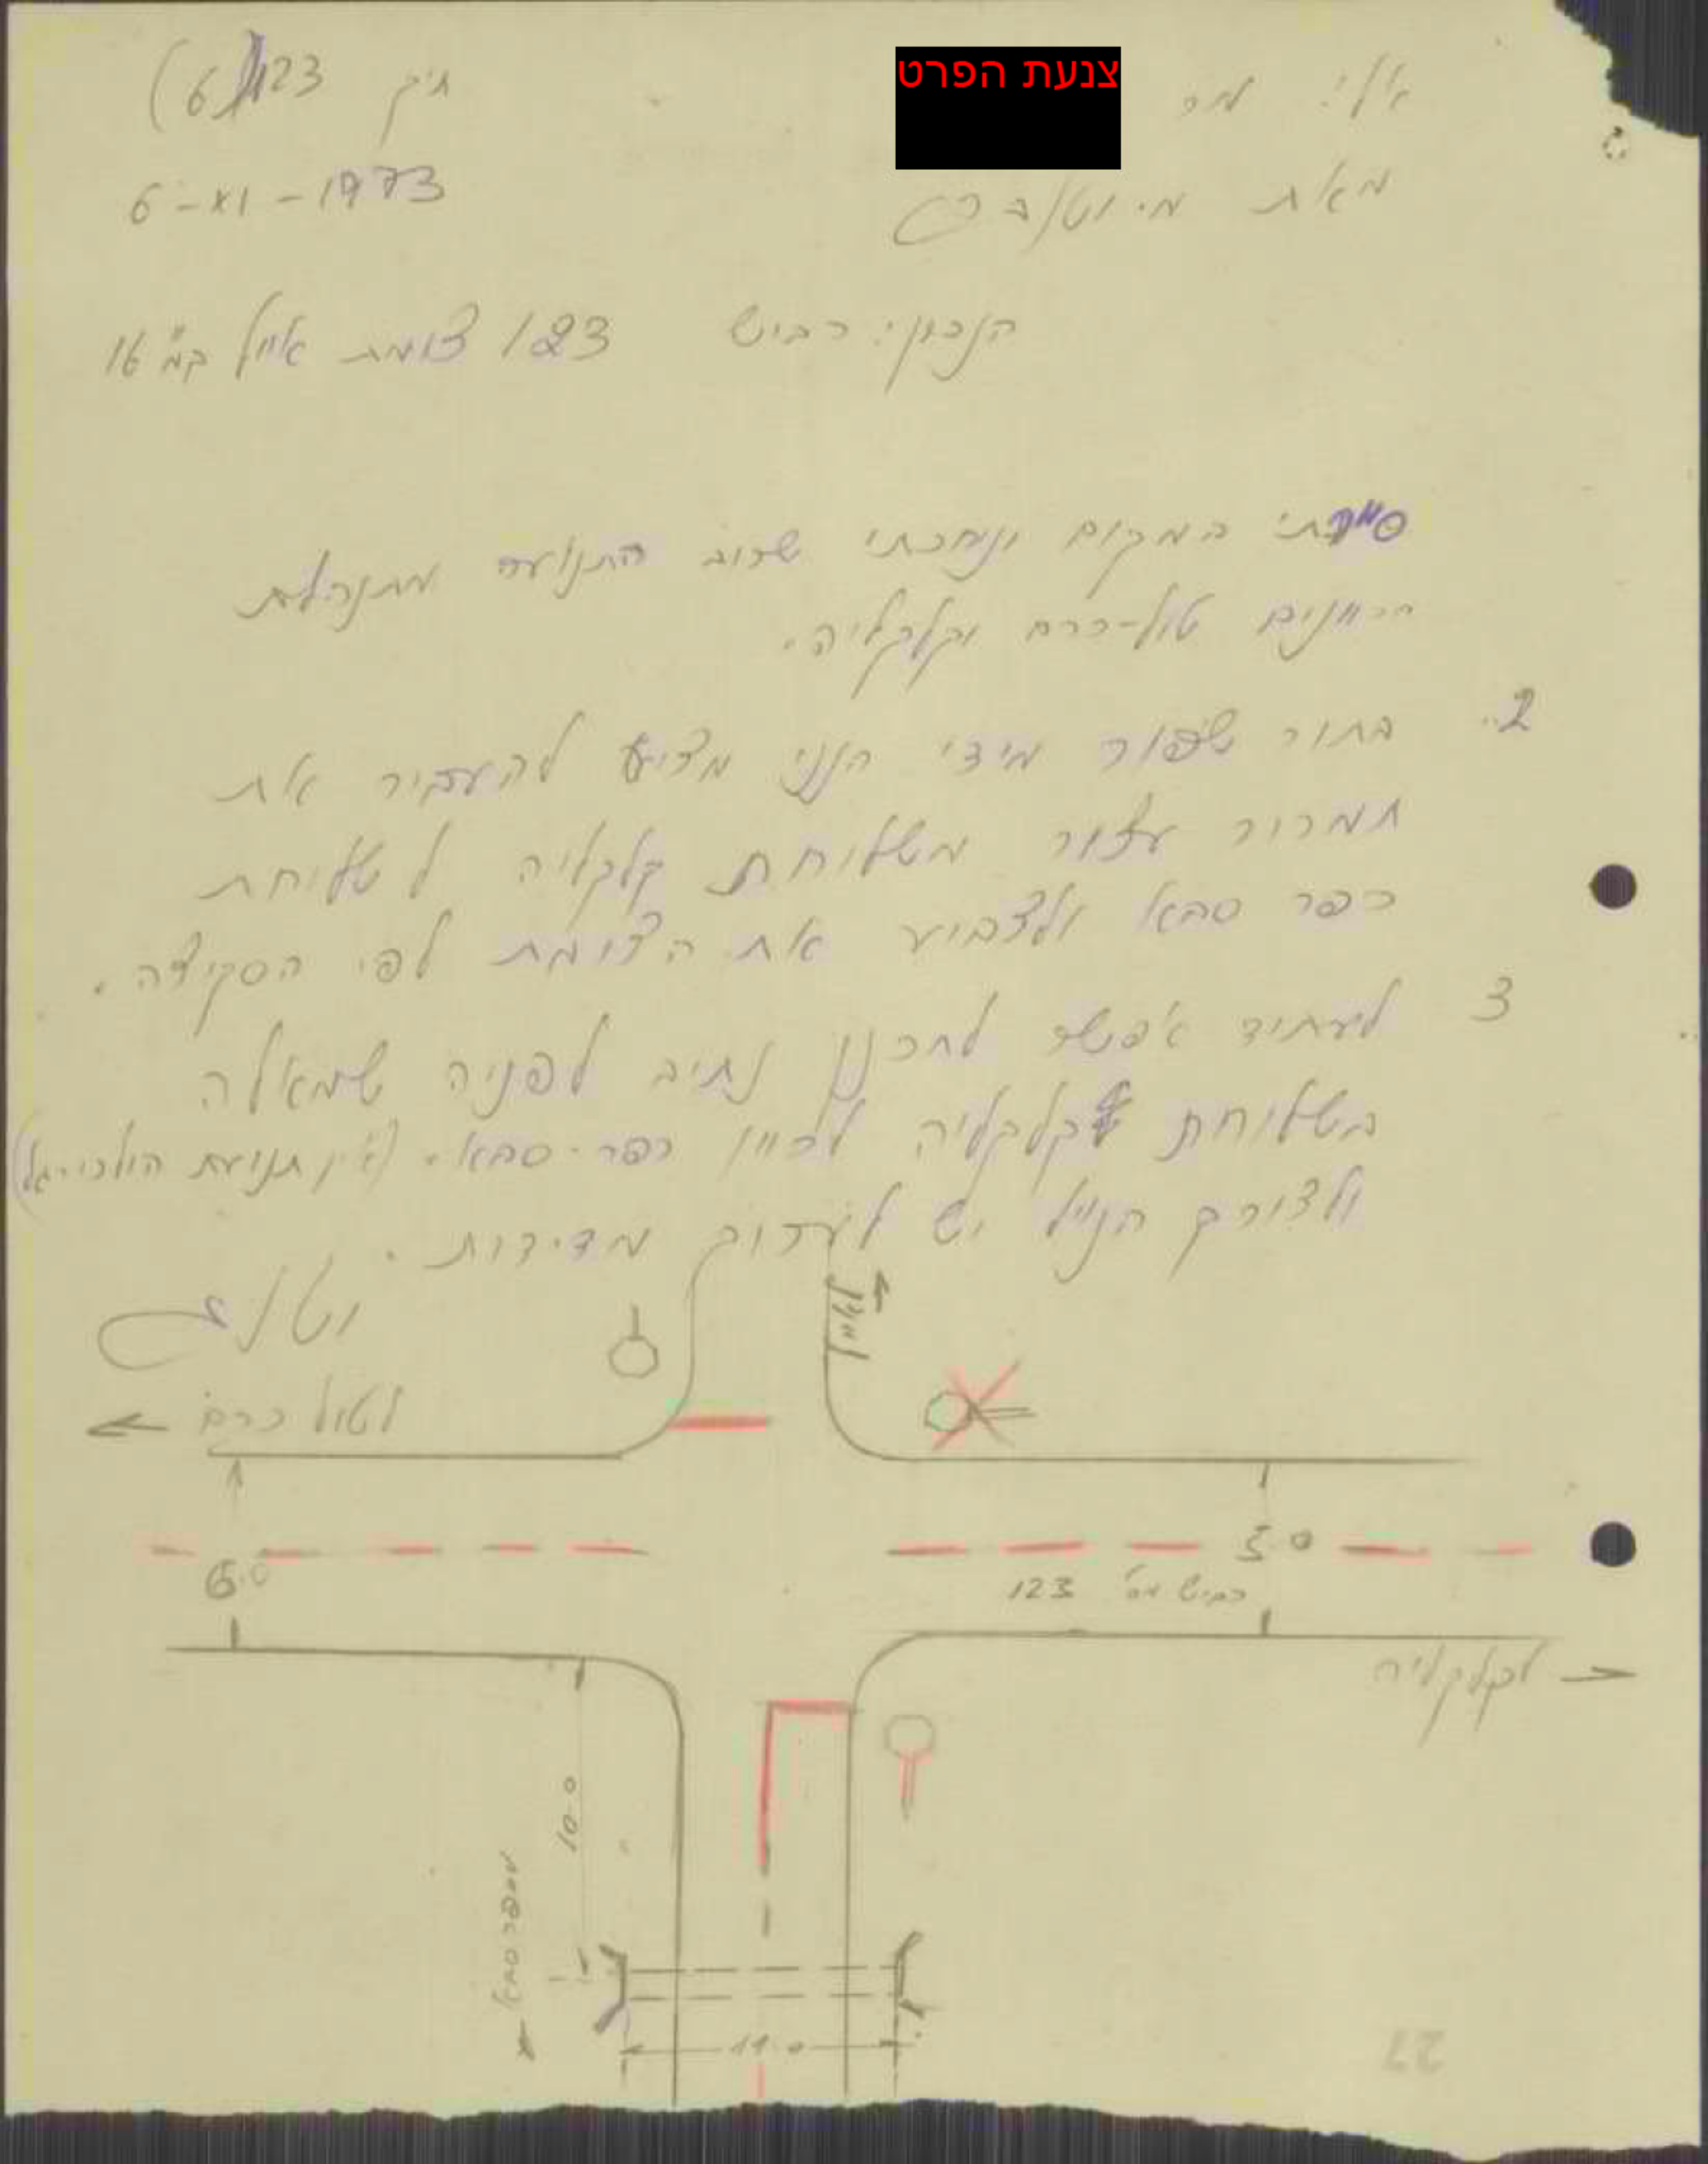 אל: מר צנעת הפרט
תיק 123 (6)
מאת מ. וטנברג
6-XI-1973
הנדון: כביש 123 צומת אייל ק"מ 16
סיירתי במקום ונוכחתי שרוב התנועה מתנהלת
בכיוונים טול-כרם וקלקליה.
2. בתור שפור מידי הנני מציע להעביר את
תמרור עצור משלוחת קלקליה לשלוחת
כפר סבא ולצבוע את הצומת לפי הסקיצה.
3 לעתיד אפשר לתכנן נתיב לפניה שמאלה
בשלוחת קלקליה לכיוון כפר-סבא. (אין תנועת הולכי-רגל)
ולצורך הנ"ל יש לערוך מדידות.
לאייל
לטול כרם
6.0
5.0
כביש מס' 123
לקלקליה
10.0
לכפר סבא
11.0
27